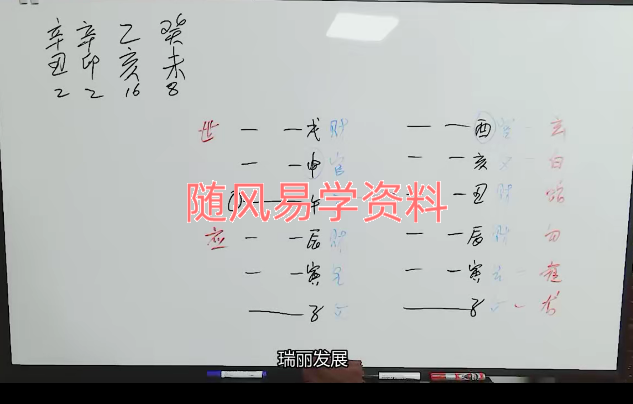 辛 辛 乙 癸
丑 卯 亥 未
2 2 16 8
世 戌 财 酉 玄
申 官 亥 父 白
午 丑 财
应 辰 财 辰 财 勾
寅 寅
子 子
随风易学资料
瑞丽发展